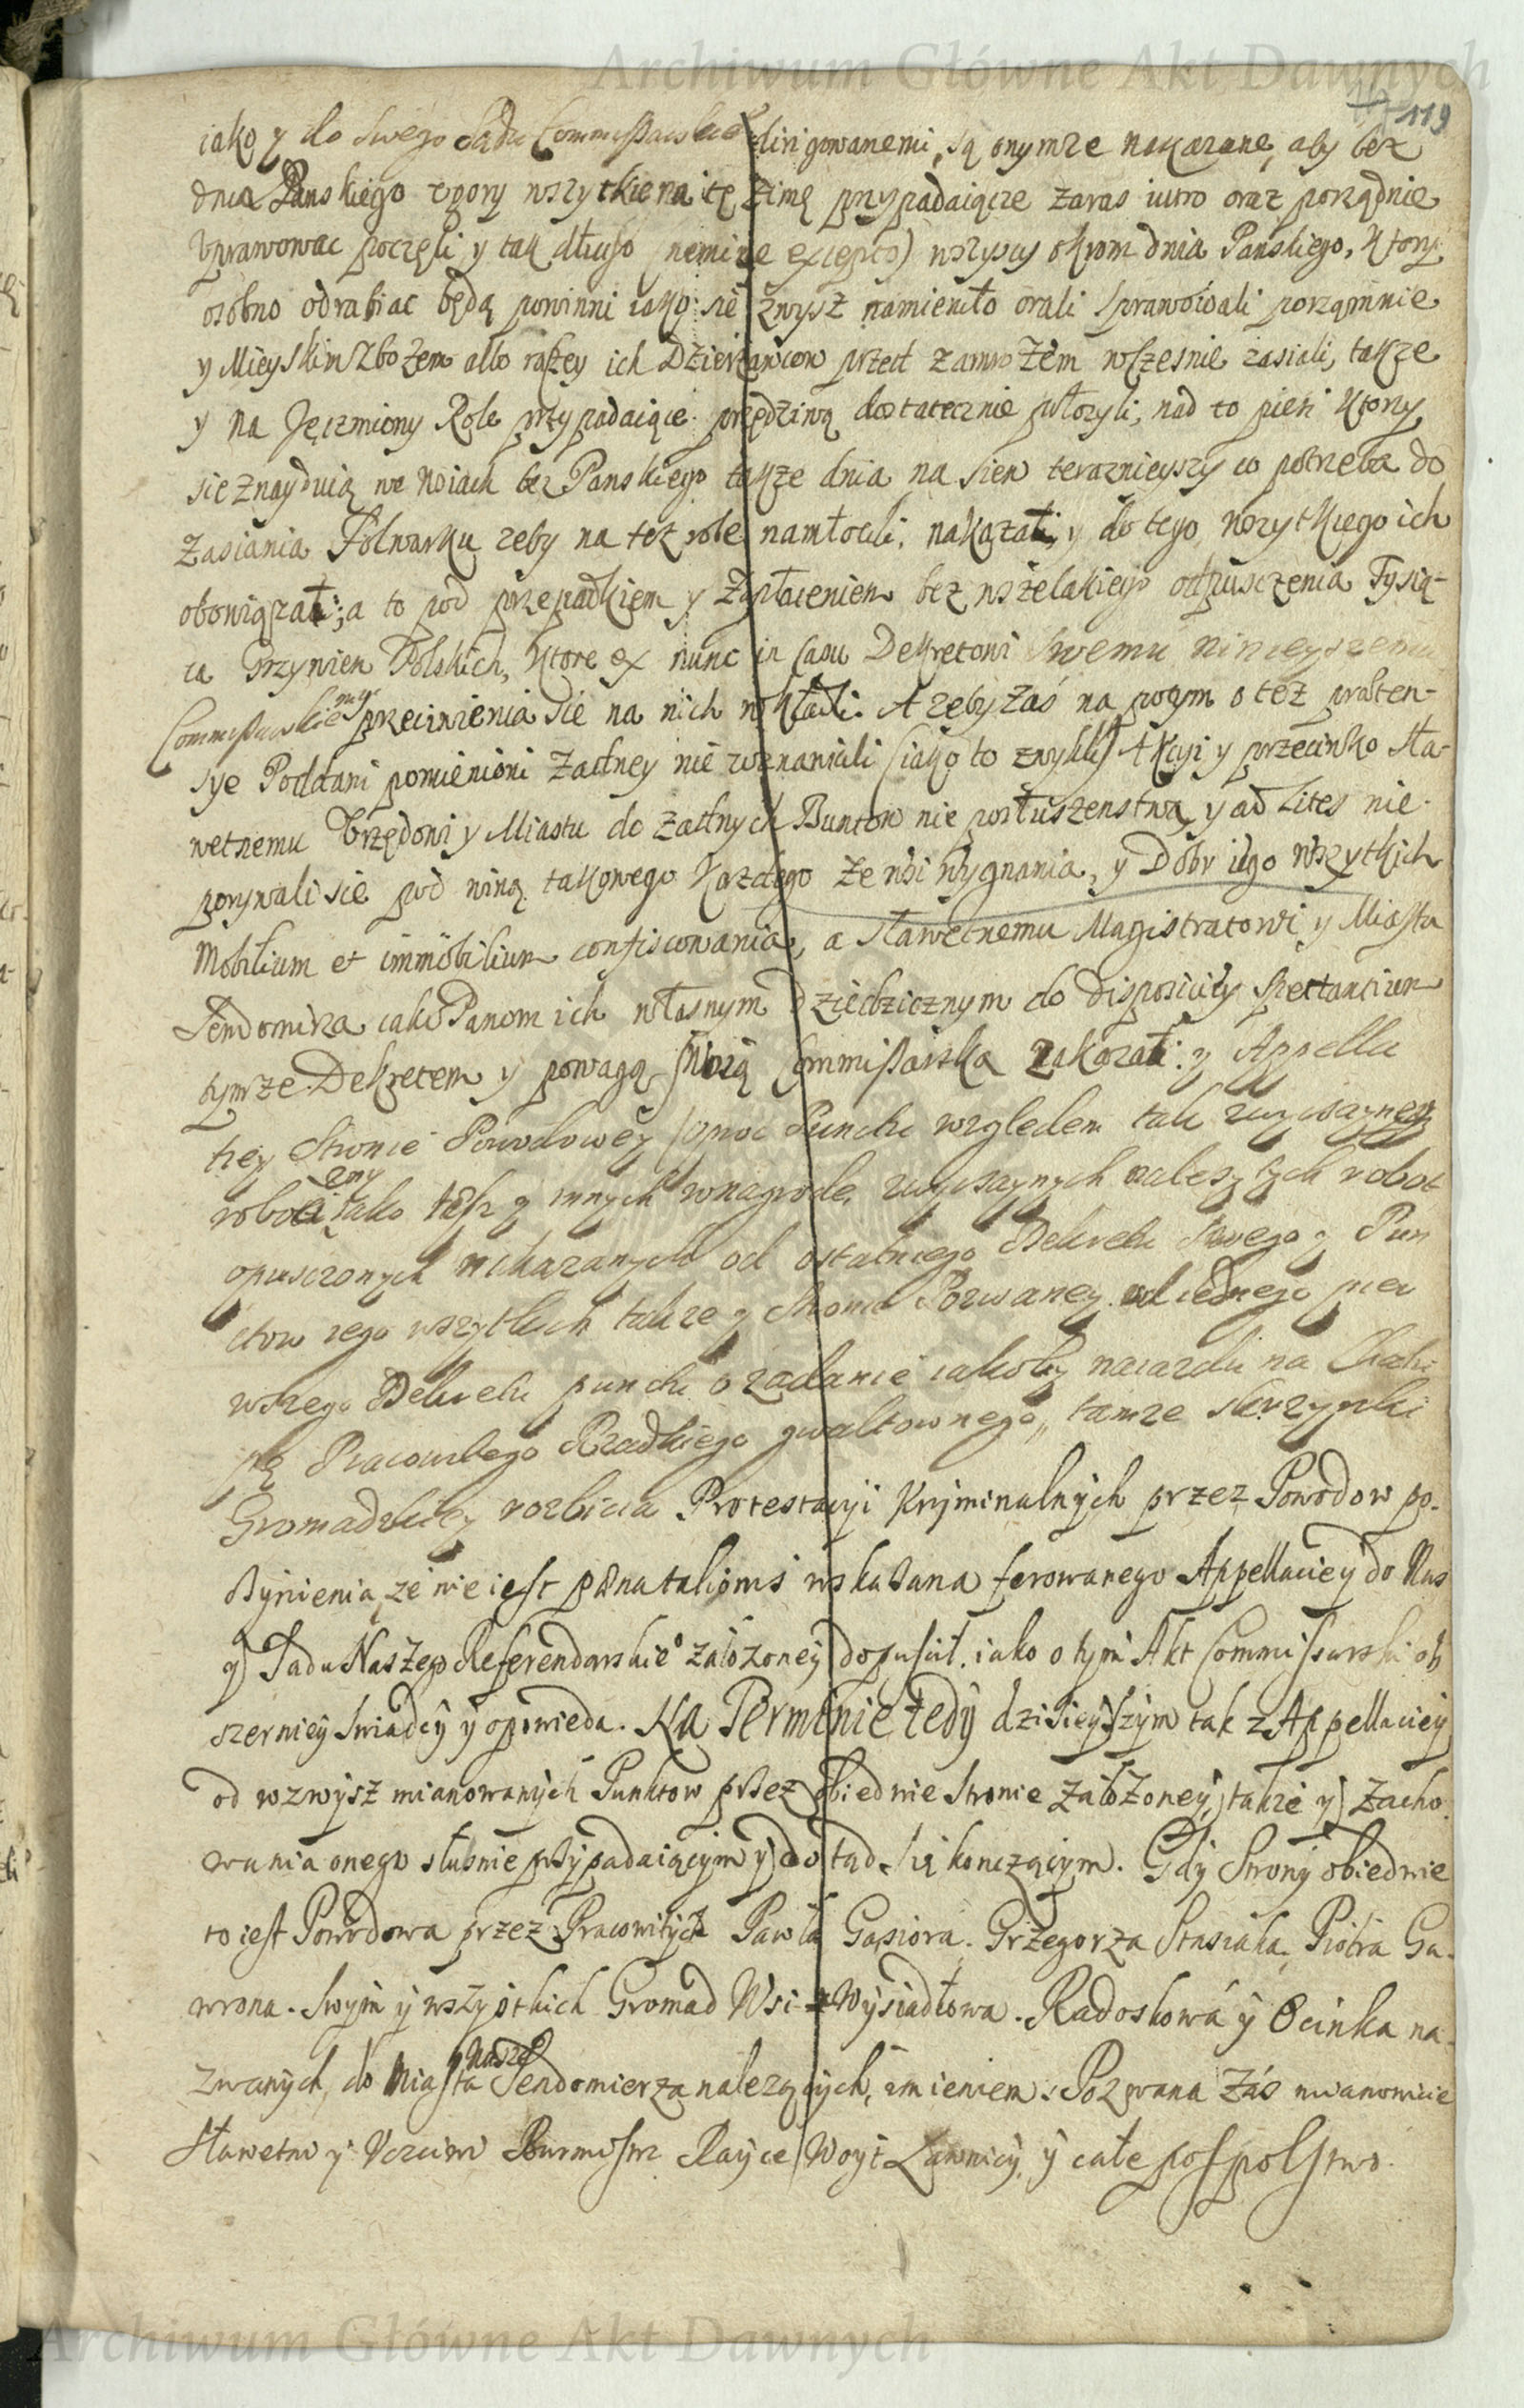 Archiwum Główne Akt Dawnych
119
iako y do swego Sądu Commissarskie dirigowanemi, są onymze nakazane, aby bez
dnia Panskiego ugory wszytkie na tę zimę przypadaiącze zaras iutro oraz porządnie
uprawowac poczęli y tak długo nemine excepto) wszyscy okrom dnia Panskiego, ktory
osobno odrabiac będą powinni iako się zwysz namieniło orali sprawowali porządnnie
y Mieyskim zbozem albo raczey ich Dzierzawcow przed zamrozem wczesnie zasiali, takze
y na Jęczmiony Role przypadaiące dostatecznie włozyli, nad to ktory
się znayduią we wsiach bez Panskiego takze dnia na sien teraznieyszy co potrzeba do
zasiania Folwarku zeby na tez role namłocili, nakazał; y do tego wszytkiego ich
obowiązał; a to pod przepadkiem y zapłaceniem bez wszelakiego odpuszczenia Tysią-
ca Grzywien Polskich, ktore ex nunc in casu Dekretowi swemu ninieyszemu
Commissarskiemu przeciwienia się na nich wkładł. A zeby zas na potym o tez praeten-
sye Poddani pomienioni zadney nie wznawiali (iako to zwykli) Akcyi y przeciwko Sła-
wetnemu Urzędowi y Miastu do zadnych Buntow nie posłuszenstwa y ad Lites nie
porywali się pod winą takowego kazdego ze wsi wygnania, y Dobr iego wszytkich
Mobilium et immobilium confiscowania, a Sławetnemu Magistratowi y Miastu
Sendomirza iako Panom ich własnym Dziedzicznym do disposiciey spectantium
tymze Dekretem y powagą swoią Commissarską zakazał: y Appella
tiey Stronie Powodowey (oproc Punctu względem tak zwyczayney
robocizny iako tesz y innych wnagrodę zwyczaynych nalesztych robot
opusczonych nakazanych od ostatniego Dekretu swego y Pun
ctow iego wszytkich takze y stronie Pozwaney od iednego pier
wszego Dekretu punctu o zadanie iakoby naiazdu na Cha
pę Pracowitego Rzadkiego gwaltownego, tamze skrzynki
Gromadzkiey rozbicia Protestacyi kryminalnych przez Powodow po-
czynienia, ze nie iest paena talionis wskazana ferowanego Appellaciey do Nas
y Sadu Naszego Referendarskie° załozoney dopuscił. iako o tym Akt Commissarski ob
szerniey swiadcy y opowieda. Na Terminie tedy dzisieyszym tak z Appellaciey
od wzwysz mianowanych Punktow przez obiedwie Stronie załozoney, takze y zacho
wania onego słusnie przypadaiącym y do tąd się konczącym. Gdy Strony obiedwie
to iest Powodowa przez Pracowitych Pawła Gąsiora. Grzegorza Stasiaka, Piotra Ga-
wrona. Swym y wszystkich Gromad Wsi Wysiadłowa. Radoskowa y Ocinka na-
zwanych, do Miasta naszego Sendomierza nalezących, imieniem. Pozwana zas mianowicie
Sławetni y Uczciwi Burmistrz Rayce Woyt Ławnicy, y całe pospolstwo.
Archiwum Główne Akt Dawnych